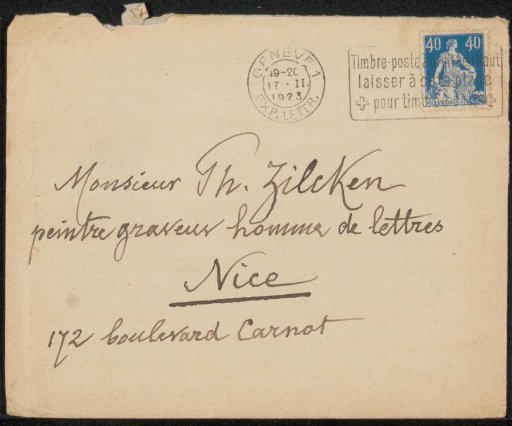 GENÈVE 1
19-20
17 · II
1923
EXP. LETTR.
40 40
Timbre-poste à
laisser à
pour timb
Monsieur Th. Zilcken
peintre graveur homme de lettres
Nice
172 boulevard Carnot